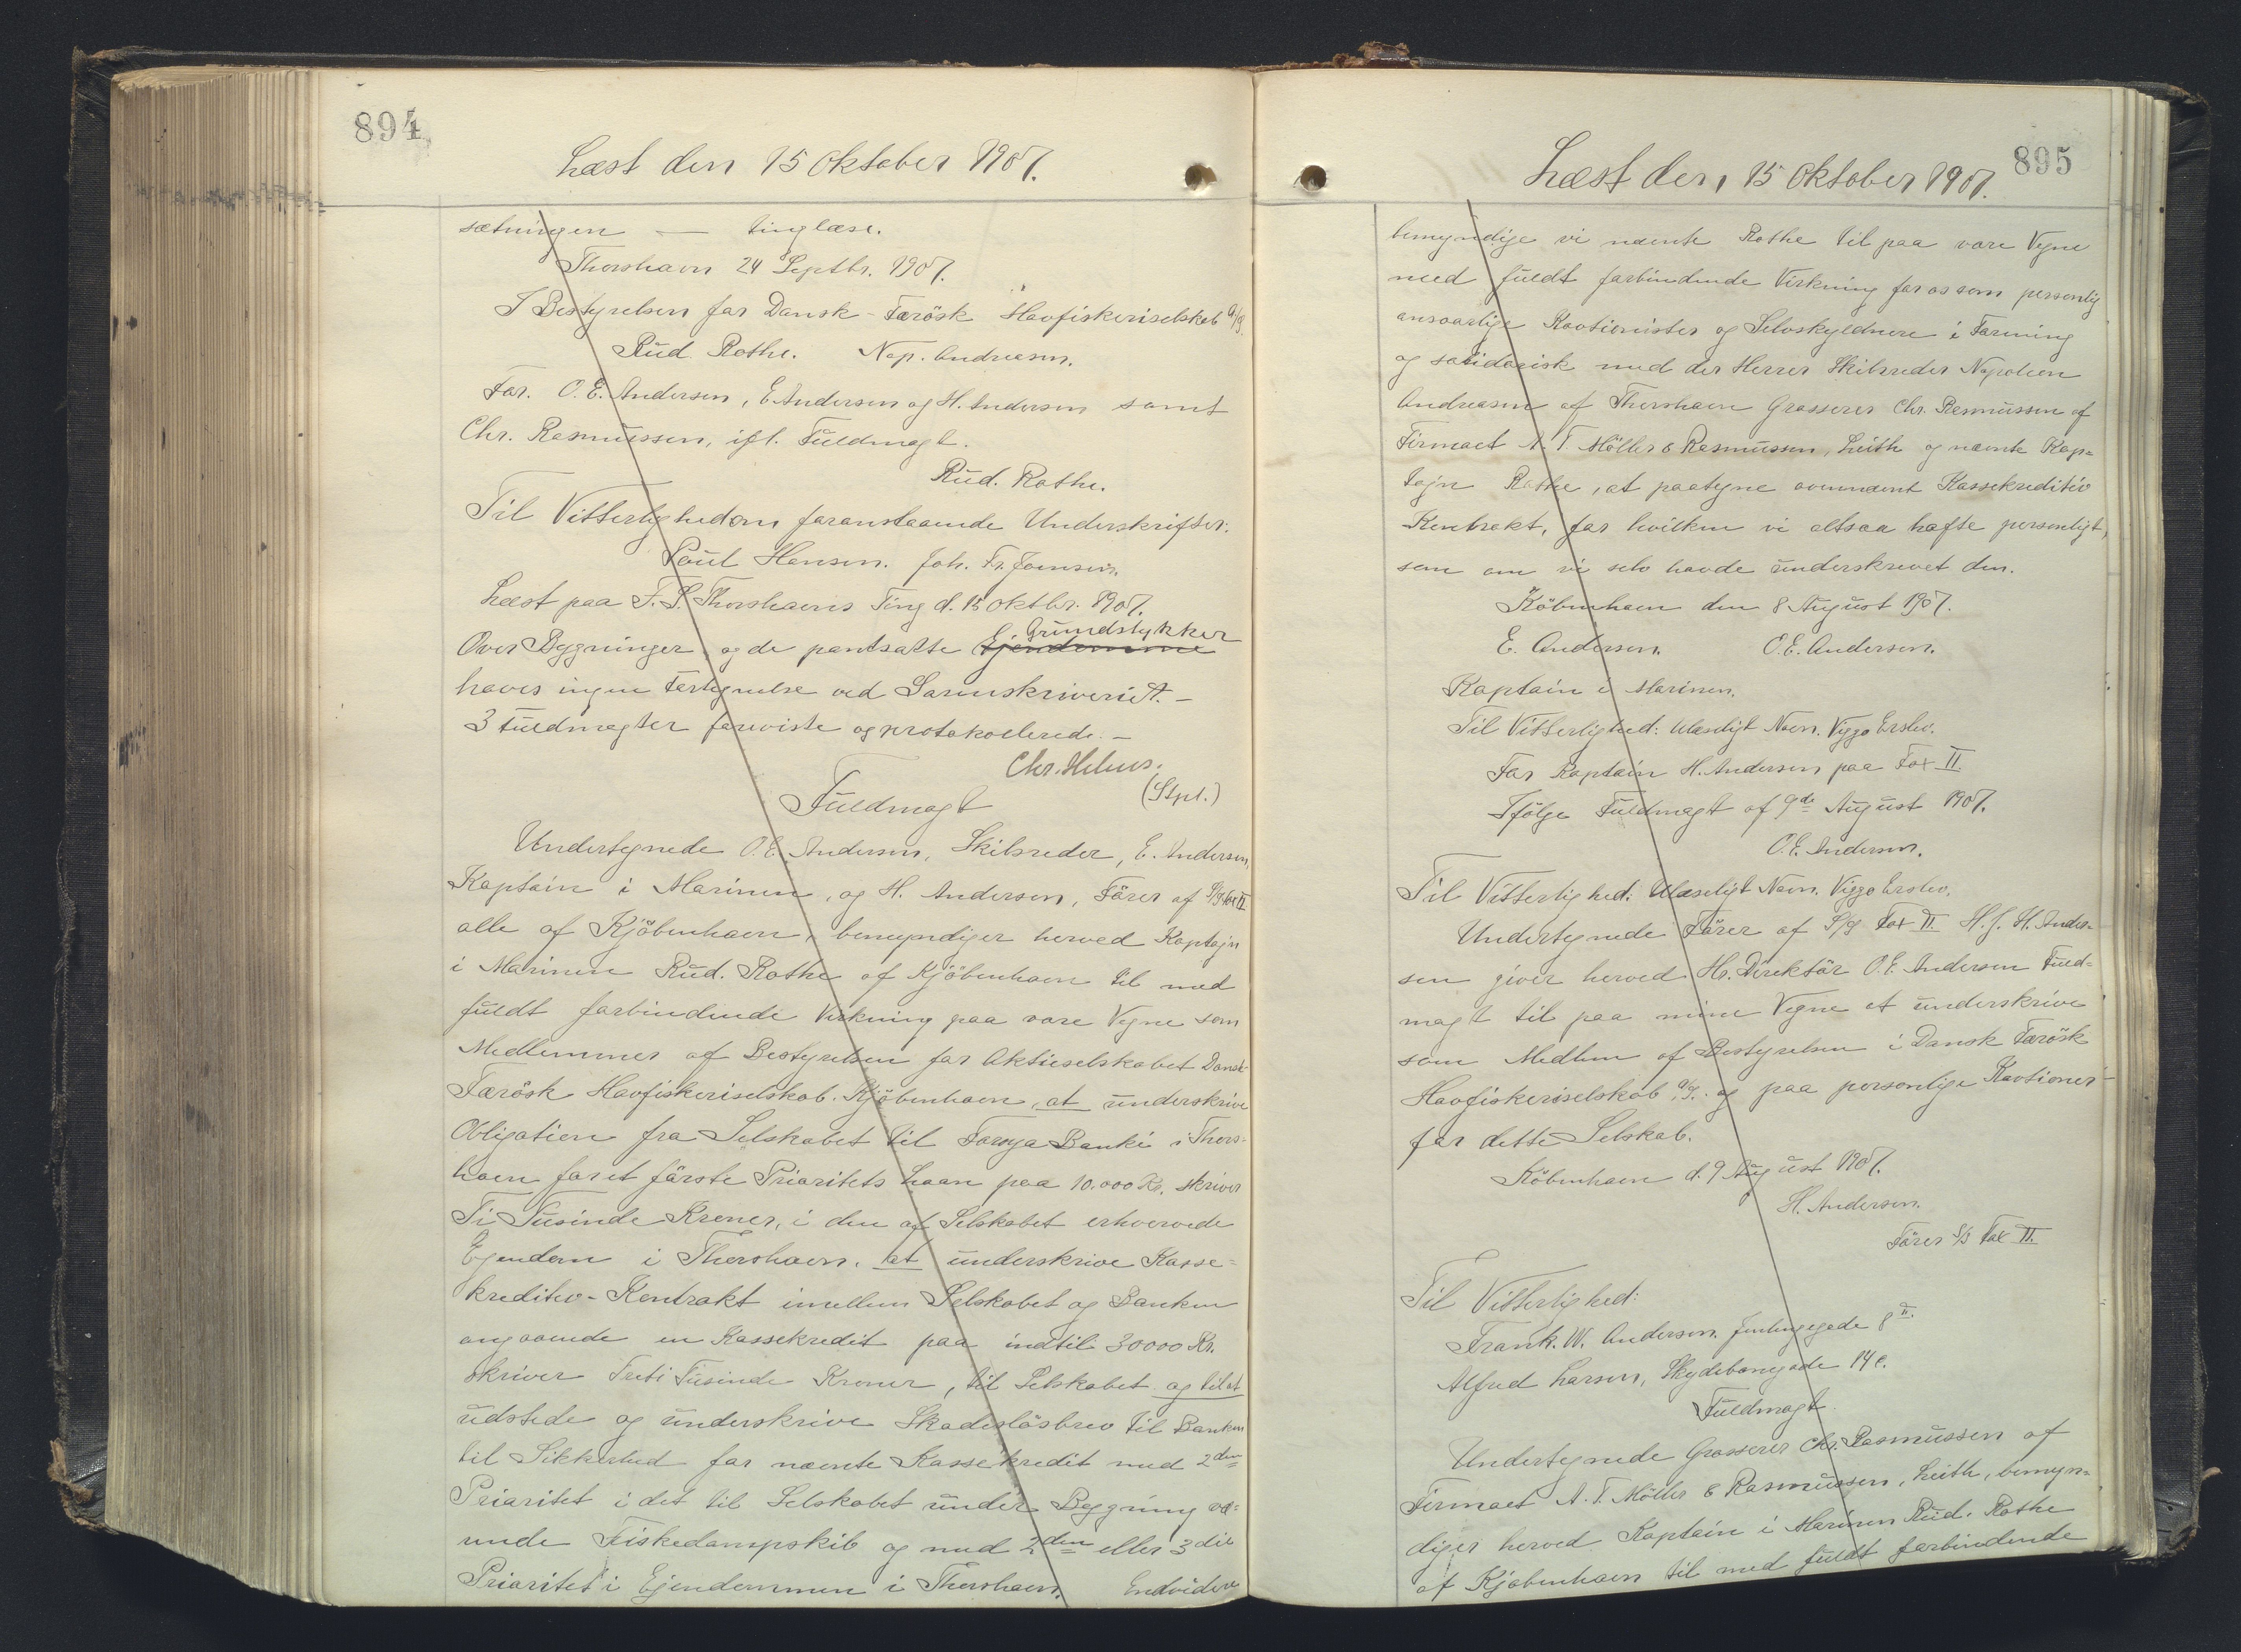 894
Læst den 15 Oktober 1907.
sætningen — tinglæse.
Thorshavn 24 Septbr. 1907.
I Bestyrelsen for Dansk-Færösk Havfiskeriselskab A/S.
Rud. Rothe. Nap. Andreasen.
For. O. E. Andersen, E. Andersen og H. Andersen samt
Chr. Rasmussen, ifl. Fuldmagt.
Rud. Rothe.
Til Vitterlighed om foranstaaende Underskrifter:
Poul Hansen. Joh. Fr. Joensen.
Læst paa F. S. Thorshavns Ting d. 15 Oktbr. 1907.
Over Bygninger og de pantsatte Ejendomme Grundstykker
haves ingen Fortegnelse ved Sorenskriveriet. –
3 Fuldmagter foreviste og protokollerede. –
Chr. Helms.
(Stpl.)
Fuldmagt
Undertegnede O. E. Andersen, Skibsreder, E. Andersen,
Kaptain i Marinen, og H. Andersen, Förer af S/S Fox II
alle af Kjöbenhavn, bemyndiger herved Kaptajn
i Marinen Rud. Rothe af Kjöbenhavn til med
fuldt forbindende Virkning paa vore Vegne som
Medlemmer af Bestyrelsen for Aktieselskabet Dansk-
Færösk Havfiskeriselskab. Kjöbenhavn, at underskrive
Obligation fra Selskabet til Föroya Banki i Thors-
havn for et förste Prioritets Laan paa 10.000 Kr. skriver
Ti Tusinde Kroner, i den af Selskabet erhvervede
Ejendom i Thorshavn. at underskrive Kasse-
kreditiv-Kontrakt imellem Selskabet og Banken
angaaende en Kassekredit paa indtil 30000 Kr.
skriver Treti Tusinde Kroner, til Selskabet og til at
udstede og underskrive Skadeslösbrev til Banken
til Sikkerhed for nævnte Kassekredit med 2den
Prioritet i det til Selskabet under Bygning væ-
rende Fiskedampskib og med 2den eller 3die
Prioritet i Ejendommen i Thorshavn. Endvidere
895
Læst den 15 Oktober 1907.
bemyndige vi nævnte Rothe til paa vore Vegne
med fuldt forbindende Virkning for os som personlig
ansvarlige Kavtionister og Selvskyldnere i Forening
og solidarisk med der Herrer Skibsreder Napoleon
Andreasen af Thorshavn Grosserer Chr. Rasmussen af
Firmaet A. T. Möller & Rasmussen, Leith og nævnte Kap-
tajn Rothe, at paategne ovennævnt Kassekreditiv
Kontrakt, for hvilken vi altsaa hæfte personligt,
som om vi selv havde underskrevet den.
Köbenhavn den 8 August 1907.
E. Andersen. O. E. Andersen.
Kaptain i Marinen.
Til Vitterlighed: Ulæseligt Navn. Viggo Erslev.
For Kaptain H. Andersen paa Fox II.
Ifölge Fuldmagt af 9de August 1907.
O. E. Andersen.
Til Vitterlighed: Ulæseligt Navn. Viggo Erslev.
Undertegnede Förer af S/S Fox II. H. J. H. Ander-
sen giver herved Hr. Direktör O. E. Andersen Fuld-
magt til paa mine Vegne at underskrive
som Medlem af Bestyrelsen i Dansk Færösk
Havfiskeriselskab A/S. og paa personlige Kavtioner
for dette Selskab.
Köbenhavn d. 9 August 1907.
H. Andersen.
Förer S/S Fox II.
Til Vitterlighed:
Frank. W. Andersen. 8 II.
Alfred Larsen, Skydebanegade 14 c.
Fuldmagt.
Undertegnede Grosserer Chr. Rasmussen af
Firmaet A. T. Möller & Rasmussen, Leith, bemyn-
diger herved Kaptain i Marinen Rud. Rothe
af Kjøbenhavn til med fuldt forbindende